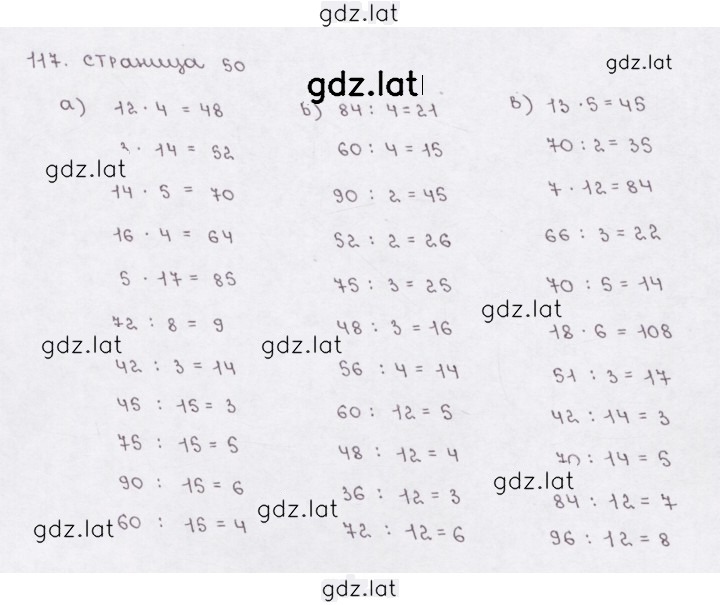 gdz.lat
117. страница 50
gdz.lat
gdz.lat
а) 12 · 4 = 48
б) 84 : 4 = 21
в) 13 · 5 = 45
· 14 = 52
60 : 4 = 15
70 : 2 = 35
gdz.lat
14 · 5 = 70
90 : 2 = 45
7 · 12 = 84
16 · 4 = 64
52 : 2 = 26
66 : 3 = 22
5 · 17 = 85
75 : 3 = 25
70 : 5 = 14
gdz.lat
72 : 8 = 9
48 : 3 = 16
18 · 6 = 108
gdz.lat
gdz.lat
42 : 3 = 14
56 : 4 = 14
51 : 3 = 17
45 : 15 = 3
60 : 12 = 5
42 : 14 = 3
75 : 15 = 5
48 : 12 = 4
70 : 14 = 5
gdz.lat
90 : 15 = 6
36 : 12 = 3
84 : 12 = 7
gdz.lat
gdz.lat
60 : 15 = 4
72 : 12 = 6
96 : 12 = 8
gdz.lat